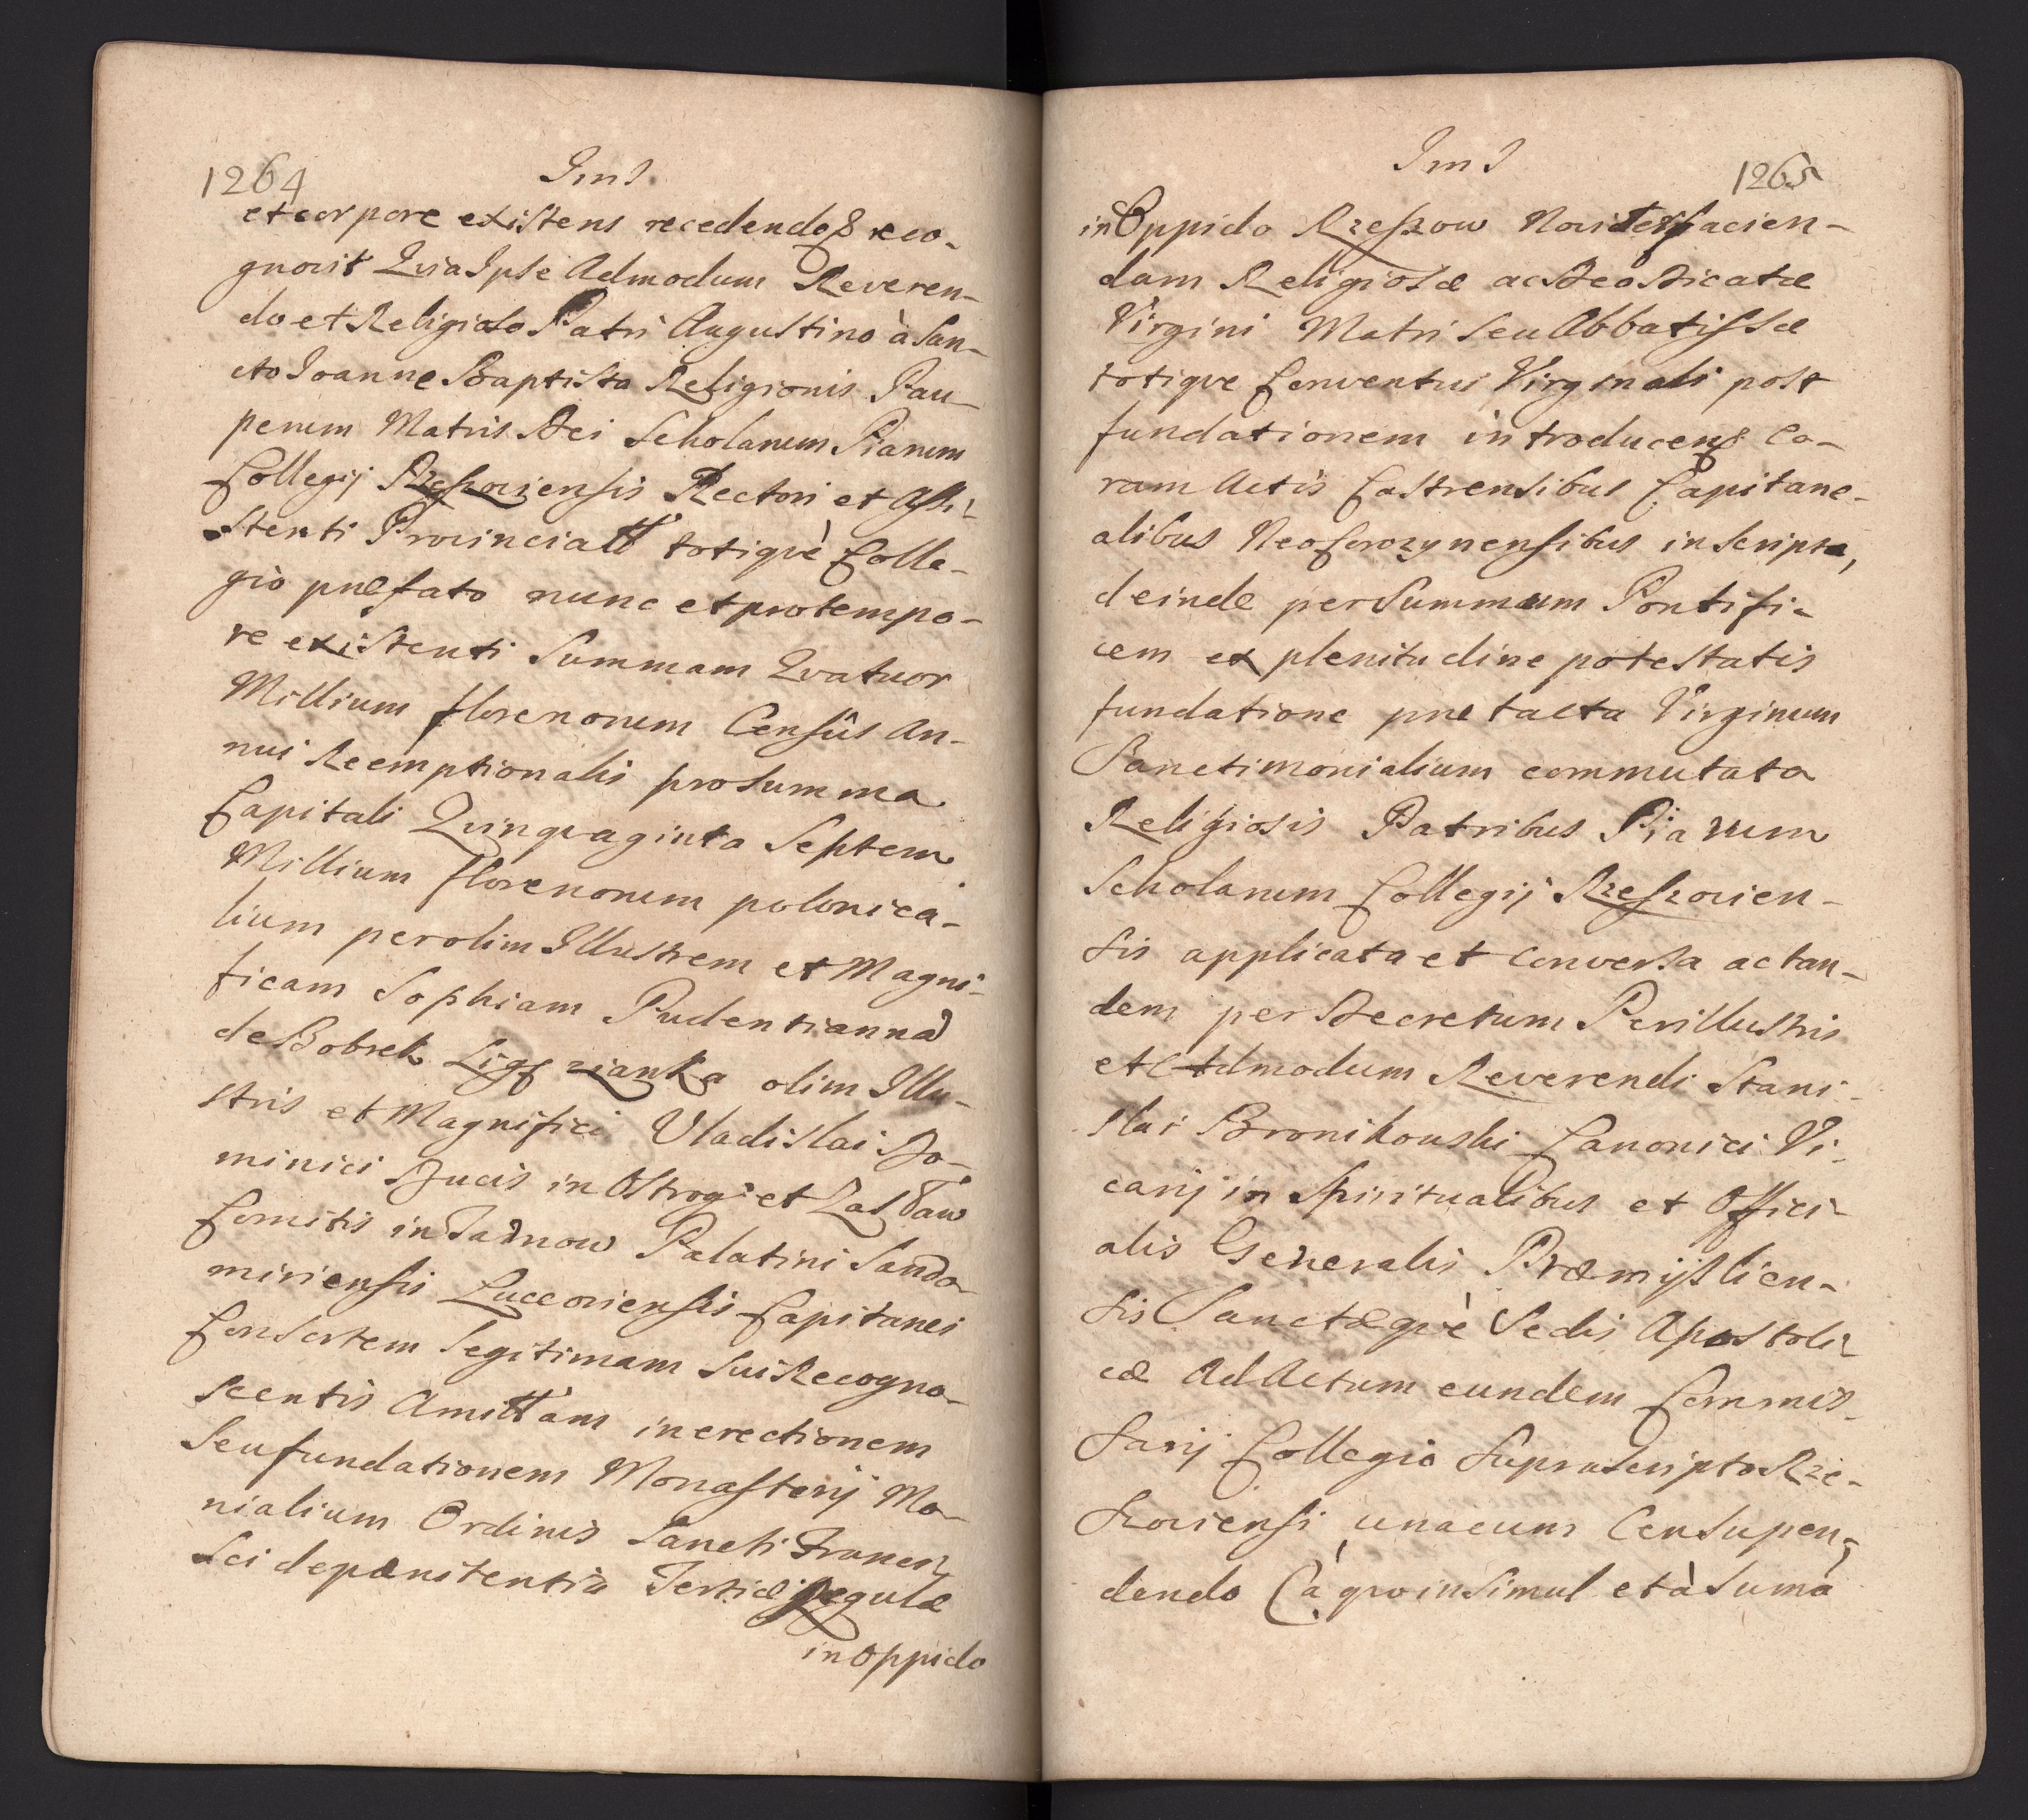 1264
et corpore existens recedendoq reco-
gnovit Quia Ipse Admodum Reveren-
do et Religioso Patri Augustino à San-
cto Joanne Baptista Religionis Pau-
perum Matris Dei Scholarum Piarum
Collegij Rzeszoviensis Rectori et Assi-
stenti Provinciali totiqvè Colle-
gio præfato nunc et pro tempo-
re existenti Summam Qvatuor
Millium florenorum Censûs An-
nui Reemptionalis pro Summa
Capitali Qvinqvaginta Septem
Millium florenorum polonica-
lium per olim Illustrem et Magni-
ficam Sophiam Pudentiannã
de Bobrek Ligęzianka olim Illu-
stris et Magnifici Vladislai Do-
minici Ducis in Ostrog et Zaslaw
Comitis in Tarnow Palatini Sando-
miriensis Luceoriensis Capitanei
Consortem legitimam Sui Recogno-
scentis Amittam in erectionem
Seu fundationem Monasterij Mo-
nialium Ordinis Sancti Franci-
sci de pænitentia Tertiæ Regulæ
in Oppido
1265
in Oppido Rzeszow Noviter facien-
dam Religiosæ ac Deo Dicatæ
Virgini Matri Seu Abbatissæ
totiqve Conventui Virginali post
fundationem introducens Co-
ram Actis Castrensibus Capitane-
alibus Neoscorczynensibus inscripta,
deinde per Summum Pontifi-
cem ex plenitudine potestatis
fundatione prætacta Virginum
Sanctimonialium commutata
Religiosis Patribus Piarum
Scholarum Collegij Rzeszovien-
sis applicata et conversa ac tan-
dem per Decretum Perillustris
et Admodum Reverendi Stani-
slai Bronikowski Canonici Vi-
carij in Spiritualibus et Offici-
alis Generalis Præmijslien-
sis Sanctæqvè Sedis Apostoli-
cæ Ad Actum eundem Commis-
sarij Collegio Suprascripto Rze-
szoviensi una cum Censu pen-
dendo (à qvo insimul et à Suma